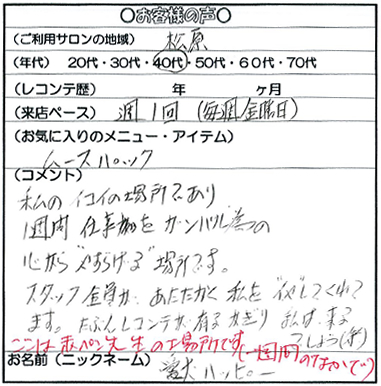 ○お客様の声○
(ご利用サロンの地域) 松原
(年代) 20代・30代・40代・50代・60代・70代
(レコンテ歴) 年 ヶ月
(来店ペース) 週1回 (毎週金曜日)
(お気に入りのメニュー・アイテム)
ムースパック
(コメント)
私のイコイの場所であり
1週間 仕事をガンバル為の
心から"やすらげる"場所です。
スタッフ全員が、あたたかく私を いやしてくれて
ます。たぶんレコンテが有るかぎり 私は、来る
でしょう(笑)
ここは赤ペン先生の工場所です。(一週間のなかで)
お名前(ニックネーム) 愛犬ハッピー